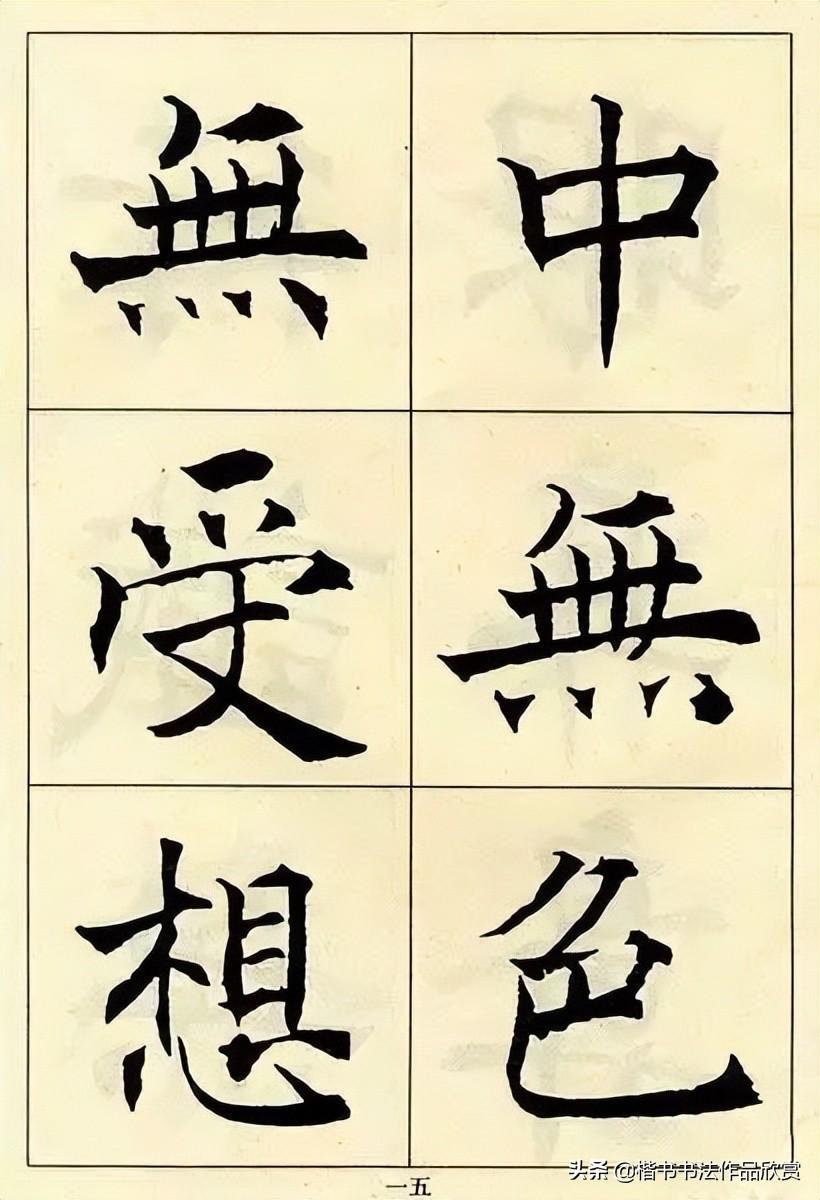 中無色
無受想
一五
头条 @楷书书法作品欣赏